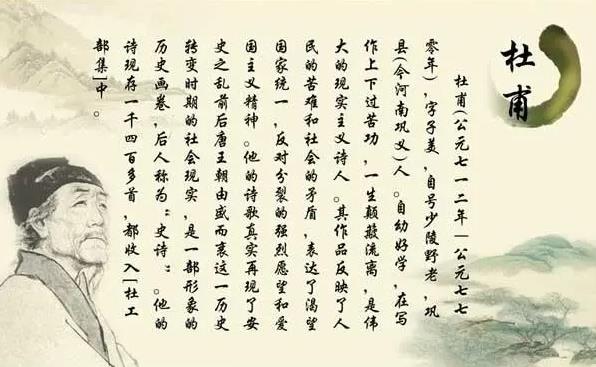 杜甫
杜甫(公元七一二年一公元七七
零年),字子美,自号少陵野老,巩
县(今河南巩义)人。自幼好学,在写
作上下过苦功,一生颠簸流离,是伟
大的现实主义诗人。其作品反映了人
民的苦难和社会的矛盾,表达了渴望
国家统一,反对分裂的强烈愿望和爱
国主义精神。他的诗歌真实再现了安
史之乱前后唐王朝由盛而衰这一历史
转变时期的社会现实,是一部形象的
历史画卷,后人称为“史诗”。他的
诗现存一千四百多首,都收入[杜工
部集]中。